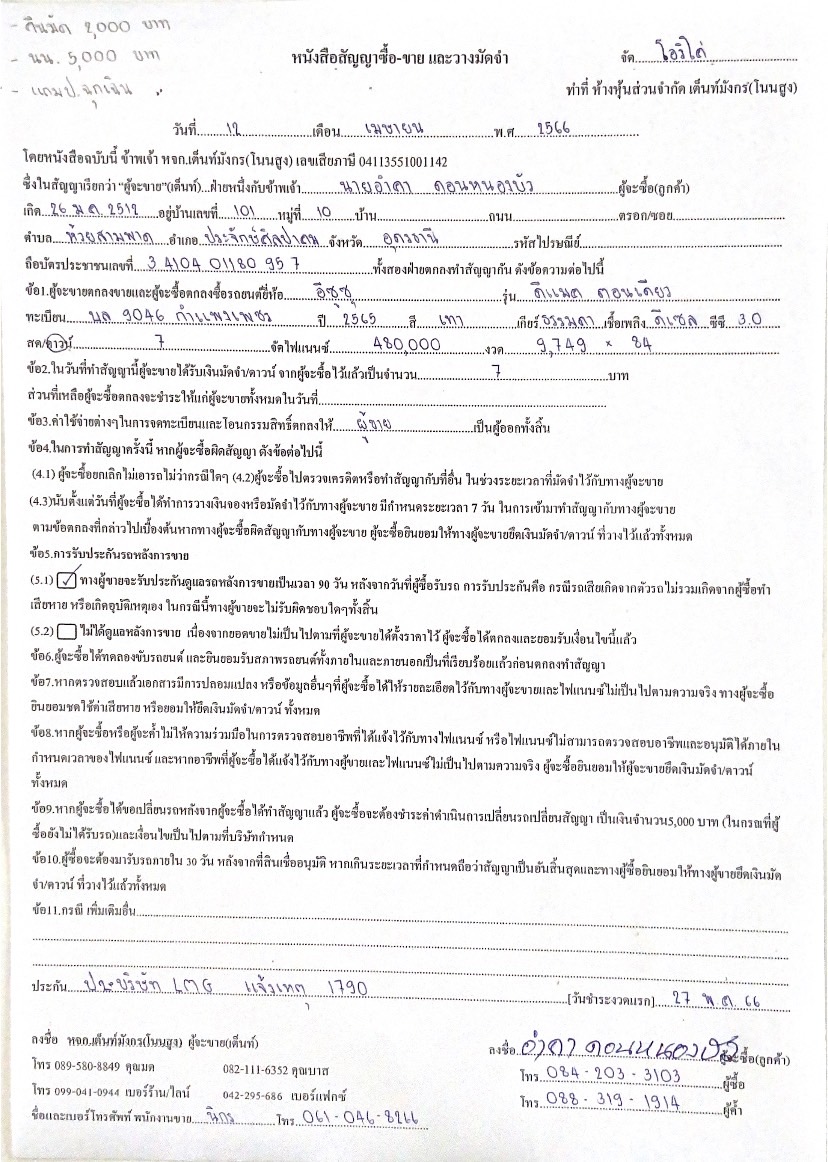 - คืนมัด 2,000 บาท
- นน. 5,000 บาท
- แถมป.ฉุกเฉิน
หนังสือสัญญาซื้อ-ขาย และวางมัดจำ จัด...โอริโค่
ทำที่ ห้างหุ้นส่วนจำกัด เต็นท์มังกร(โนนสูง)
วันที่ 12 เดือน เมษายน พ.ศ 2566
โดยหนังสือฉบับนี้ ข้าพเจ้า หจก.เต็นท์มังกร(โนนสูง) เลขเสียภาษี 04113551001142
ซึ่งในสัญญาเรียกว่า "ผู้จะขาย"(เต็นท์)...ฝ่ายหนึ่งกับข้าพเจ้า นายอำคา ดอนหนองบัว ผู้จะซื้อ(ลูกค้า)
เกิด 26 ม.ค. 2512 อยู่บ้านเลขที่ 101 หมู่ที่ 10 บ้าน ถนน ตรอก/ซอย
ตำบล ห้วยสามพาด อำเภอ ประจักษ์ศิลปาคม จังหวัด อุดรธานี รหัสไปรษณีย์
ถือบัตรประชาชนเลขที่ 3 4104 01180 95 7 ทั้งสองฝ่ายตกลงทำสัญญากัน ดังข้อความต่อไปนี้
ข้อ1.ผู้จะขายตกลงขายและผู้จะซื้อตกลงซื้อรถยนต์ยี่ห้อ อีซูซุ รุ่น ดีแมค ตอนเดียว
ทะเบียน บล 9046 กำแพงเพชร ปี 2565 สี เทา เกียร์ ธรรมดา เชื้อเพลิง ดีเซล ซีซี. 3.0
สด/ดาวน์ 7 จัดไฟแนนซ์ 480,000 งวด 9,749 × 84
ข้อ2.ในวันที่ทำสัญญานี้ผู้จะขายได้รับเงินมัดจำ/ดาวน์ จากผู้จะซื้อไว้แล้วเป็นจำนวน 7 บาท
ส่วนที่เหลือผู้จะซื้อตกลงจะชำระให้แก่ผู้จะขายทั้งหมดในวันที่
ข้อ3.ค่าใช้จ่ายต่างๆในการจดทะเบียนและโอนกรรมสิทธิ์ตกลงให้ ผู้ขาย เป็นผู้ออกทั้งสิ้น
ข้อ4.ในการทำสัญญาครั้งนี้ หากผู้จะซื้อผิดสัญญา ดังข้อต่อไปนี้
(4.1) ผู้จะซื้อยกเลิกไม่เอารถไม่ว่ากรณีใดๆ (4.2)ผู้จะซื้อไปตรวจเครดิตหรือทำสัญญากับที่อื่น ในช่วงระยะเวลาที่มัดจำไว้กับทางผู้จะขาย
(4.3)นับตั้งแต่วันที่ผู้จะซื้อได้ทำการวางเงินจองหรือมัดจำไว้กับทางผู้จะขาย มีกำหนดระยะเวลา 7 วัน ในการเข้ามาทำสัญญากับทางผู้จะขาย
ตามข้อตกลงที่กล่าวไปเบื้องต้นหากทางผู้จะซื้อผิดสัญญากับทางผู้จะขาย ผู้จะซื้อยินยอมให้ทางผู้จะขายยึดเงินมัดจำ/ดาวน์ ที่วางไว้แล้วทั้งหมด
ข้อ5.การรับประกันรถหลังการขาย
(5.1) ทางผู้ขายจะรับประกันดูแลรถหลังการขายเป็นเวลา 90 วัน หลังจากวันที่ผู้ซื้อรับรถ การรับประกันคือ กรณีรถเสียเกิดจากตัวรถไม่รวมเกิดจากผู้ซื้อทำ
เสียหาย หรือเกิดอุบัติเหตุเอง ในกรณีนี้ทางผู้ขายจะไม่รับผิดชอบใดๆทั้งสิ้น
(5.2) ไม่ได้ดูแลหลังการขาย เนื่องจากยอดขายไม่เป็นไปตามที่ผู้จะขายได้ตั้งราคาไว้ ผู้จะซื้อได้ตกลงและยอมรับเงื่อนไขนี้แล้ว
ข้อ6.ผู้จะซื้อได้ทดลองขับรถยนต์ และยินยอมรับสภาพรถยนต์ทั้งภายในและภายนอกเป็นที่เรียบร้อยแล้วก่อนตกลงทำสัญญา
ข้อ7.หากตรวจสอบแล้วเอกสารมีการปลอมแปลง หรือข้อมูลอื่นๆที่ผู้จะซื้อได้ให้รายละเอียดไว้กับทางผู้จะขายและไฟแนนซ์ไม่เป็นไปตามความจริง ทางผู้จะซื้อ
ยินยอมชดใช้ค่าเสียหาย หรือยอมให้ยึดเงินมัดจำ/ดาวน์ ทั้งหมด
ข้อ8.หากผู้จะซื้อหรือผู้จะค้ำไม่ให้ความร่วมมือในการตรวจสอบอาชีพที่ได้แจ้งไว้กับทางไฟแนนซ์ หรือไฟแนนซ์ไม่สามารถตรวจสอบอาชีพและอนุมัติได้ภายใน
กำหนดเวลาของไฟแนนซ์ และหากอาชีพที่ผู้จะซื้อได้แจ้งไว้กับทางผู้ขายและไฟแนนซ์ไม่เป็นไปตามความจริง ผู้จะซื้อยินยอมให้ผู้จะขายยึดเงินมัดจำ/ดาวน์
ทั้งหมด
ข้อ9.หากผู้จะซื้อได้ขอเปลี่ยนรถหลังจากผู้จะซื้อได้ทำสัญญาแล้ว ผู้จะซื้อจะต้องชำระค่าดำเนินการเปลี่ยนรถเปลี่ยนสัญญา เป็นเงินจำนวน5,000 บาท (ในกรณีที่ผู้
ซื้อยังไม่ได้รับรถ)และเงื่อนไขเป็นไปตามที่บริษัทกำหนด
ข้อ10.ผู้ซื้อจะต้องมารับรถภายใน 30 วัน หลังจากที่สินเชื่ออนุมัติ หากเกินระยะเวลาที่กำหนดถือว่าสัญญาเป็นอันสิ้นสุดและทางผู้ซื้อยินยอมให้ทางผู้ขายยึดเงินมัด
จำ/ดาวน์ ที่วางไว้แล้วทั้งหมด
ข้อ11.กรณี เพิ่มเติมอื่น
ประกัน ปะบริษัท LMG แจ้งเหตุ 1790 [วันชำระงวดแรก] 27 พ.ค. 66
ลงชื่อ หจก.เต็นท์มังกร(โนนสูง) ผู้จะขาย(เต็นท์) ลงชื่อ อำคา ดอนหนองบัว ผู้จะซื้อ(ลูกค้า)
โทร 089-580-8849 คุณมด 082-111-6352 คุณบาส โทร 084-203-3103 ผู้ซื้อ
โทร 099-041-0944 เบอร์ร้าน/ไลน์ 042-295-686 เบอร์แฟกซ์ โทร 088-319-1914 ผู้ค้ำ
ชื่อและเบอร์โทรศัพท์ พนักงานขาย นิกร โทร 061-046-8266